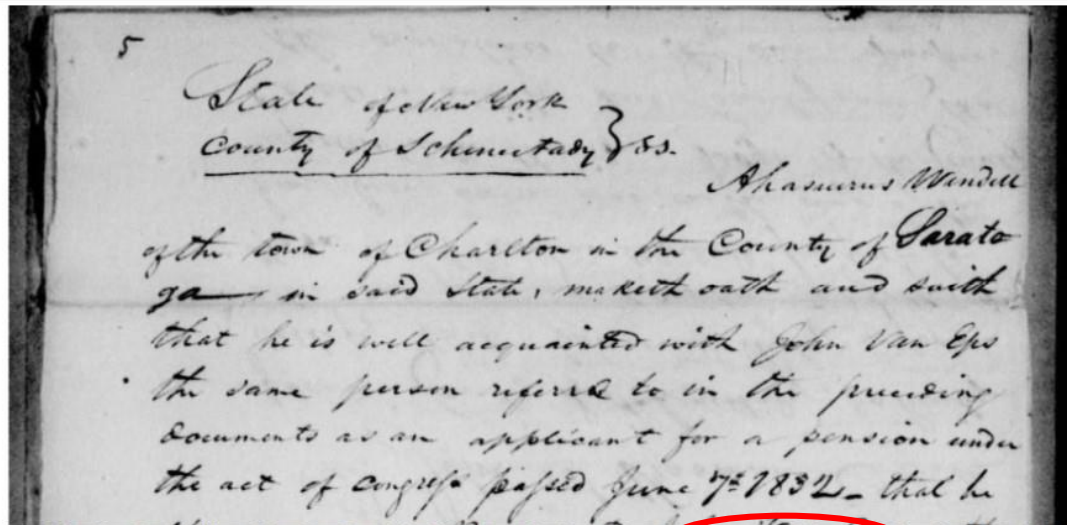 5
State of New York
County of Schenectady } SS.
Ahasuerus Wendell
of the town of Charlton in the County of Sarato
ga in said State, maketh oath and saith
that he is well acquainted with John Van Eps
the same person referred to in the preceding
documents as an applicant for a pension under
the act of Congress passed June 7th 1832 – that he